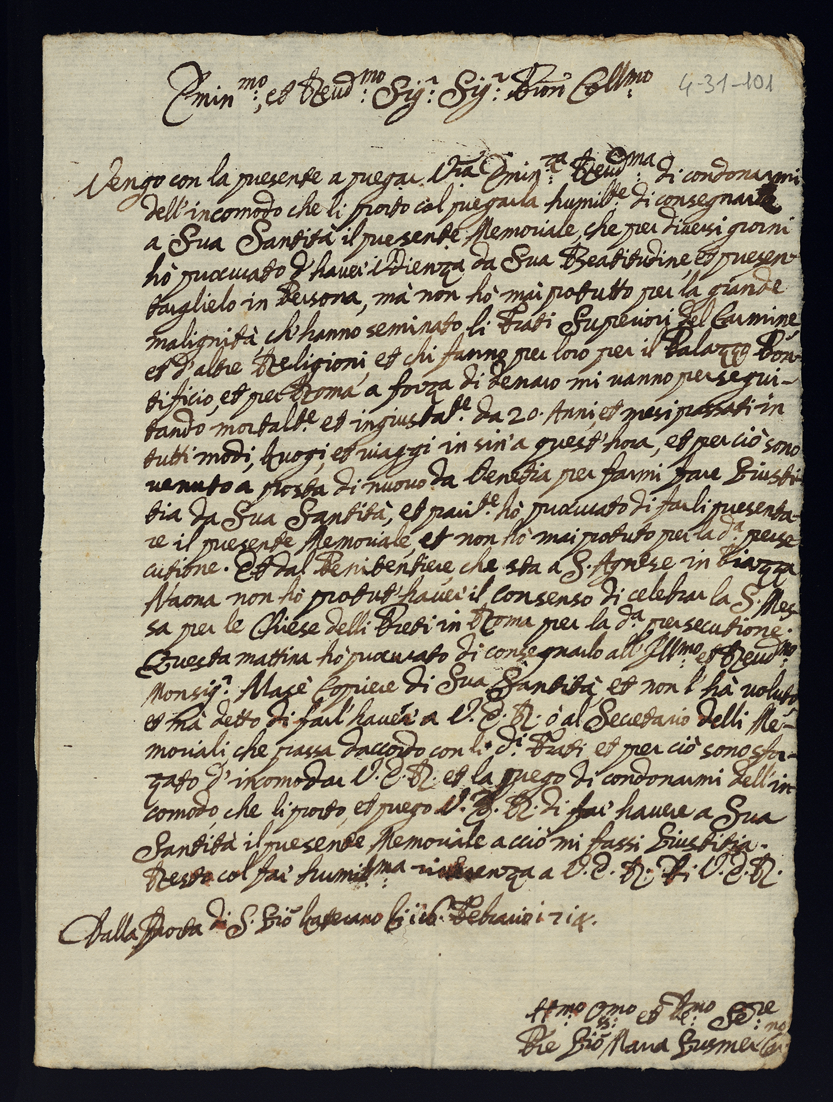 Emin.mo, et Reud.mo Sig.r Sig.r Pron' Coll.mo
4-31-101
Vengo con la presente a pregar V'ra Emin.za Reud.ma di condonarmi
dell'incomodo che li porto col pregarla humil.te di consegnare
a Sua Santità il presente Memoriale, che per diversi giorni
hò procurato d'haver Udienza da Sua Beatitudine, et presen-
targlielo in Persona, mà non hò mai potutto per la grande
malignità, ch'hanno seminato li Frati Superiori del Carmine,
et d'altre Religioni, et chi fanno per loro per il Palazzo Pon-
tificio, et per Roma a forza di denaro mi vanno persegui-
tando mortal.te et ingiusta.te da 20. Anni, et mesi passati in
tutti modi, luogi, et viaggi in sin'a quest'hora, et per ciò sono
venuto a posta di nuovo da Venetia per farmi fare Giusti-
tia da Sua Santità, et pari.te hò procurato di farli presenta-
re il presente Memoriale, et non hò mai potuto per la d.a perse
cutione. Et dal Penitentiere che sta a S. Agnese in Piazza
Navona non hò potut'haver il consenso di celebrar la S. Mes-
sa per le Chiese delli Preti in Roma per la d.a persecutione.
Questa mattina hò procurato di consegnarlo all'Ill.mo et Reud.mo
Monsig.r Masè Copiere di Sua Santità, et non l'hà voluto
et m'hà detto di farl'haver a V. E. R. ò al Secetario delli Me-
moriali, che passa daccordo con li d.i Frati et per ciò sono sfor-
zato d'incomodar V. E. R. et la prego di condonarmi dell'in
comodo che li porto, et prego V. E. R. di far havere a Sua
Santità il presente Memoriale acciò mi fassi Giustitia.
Resto col far humil.ma riverenza a V. E. R. Di V. E. R.
Dalla Porta di S. Giō Laterano li 16. Febraro 1714.
H.mo D.mo et Re.mo Se.re
Fre Giō Maria Gusmer